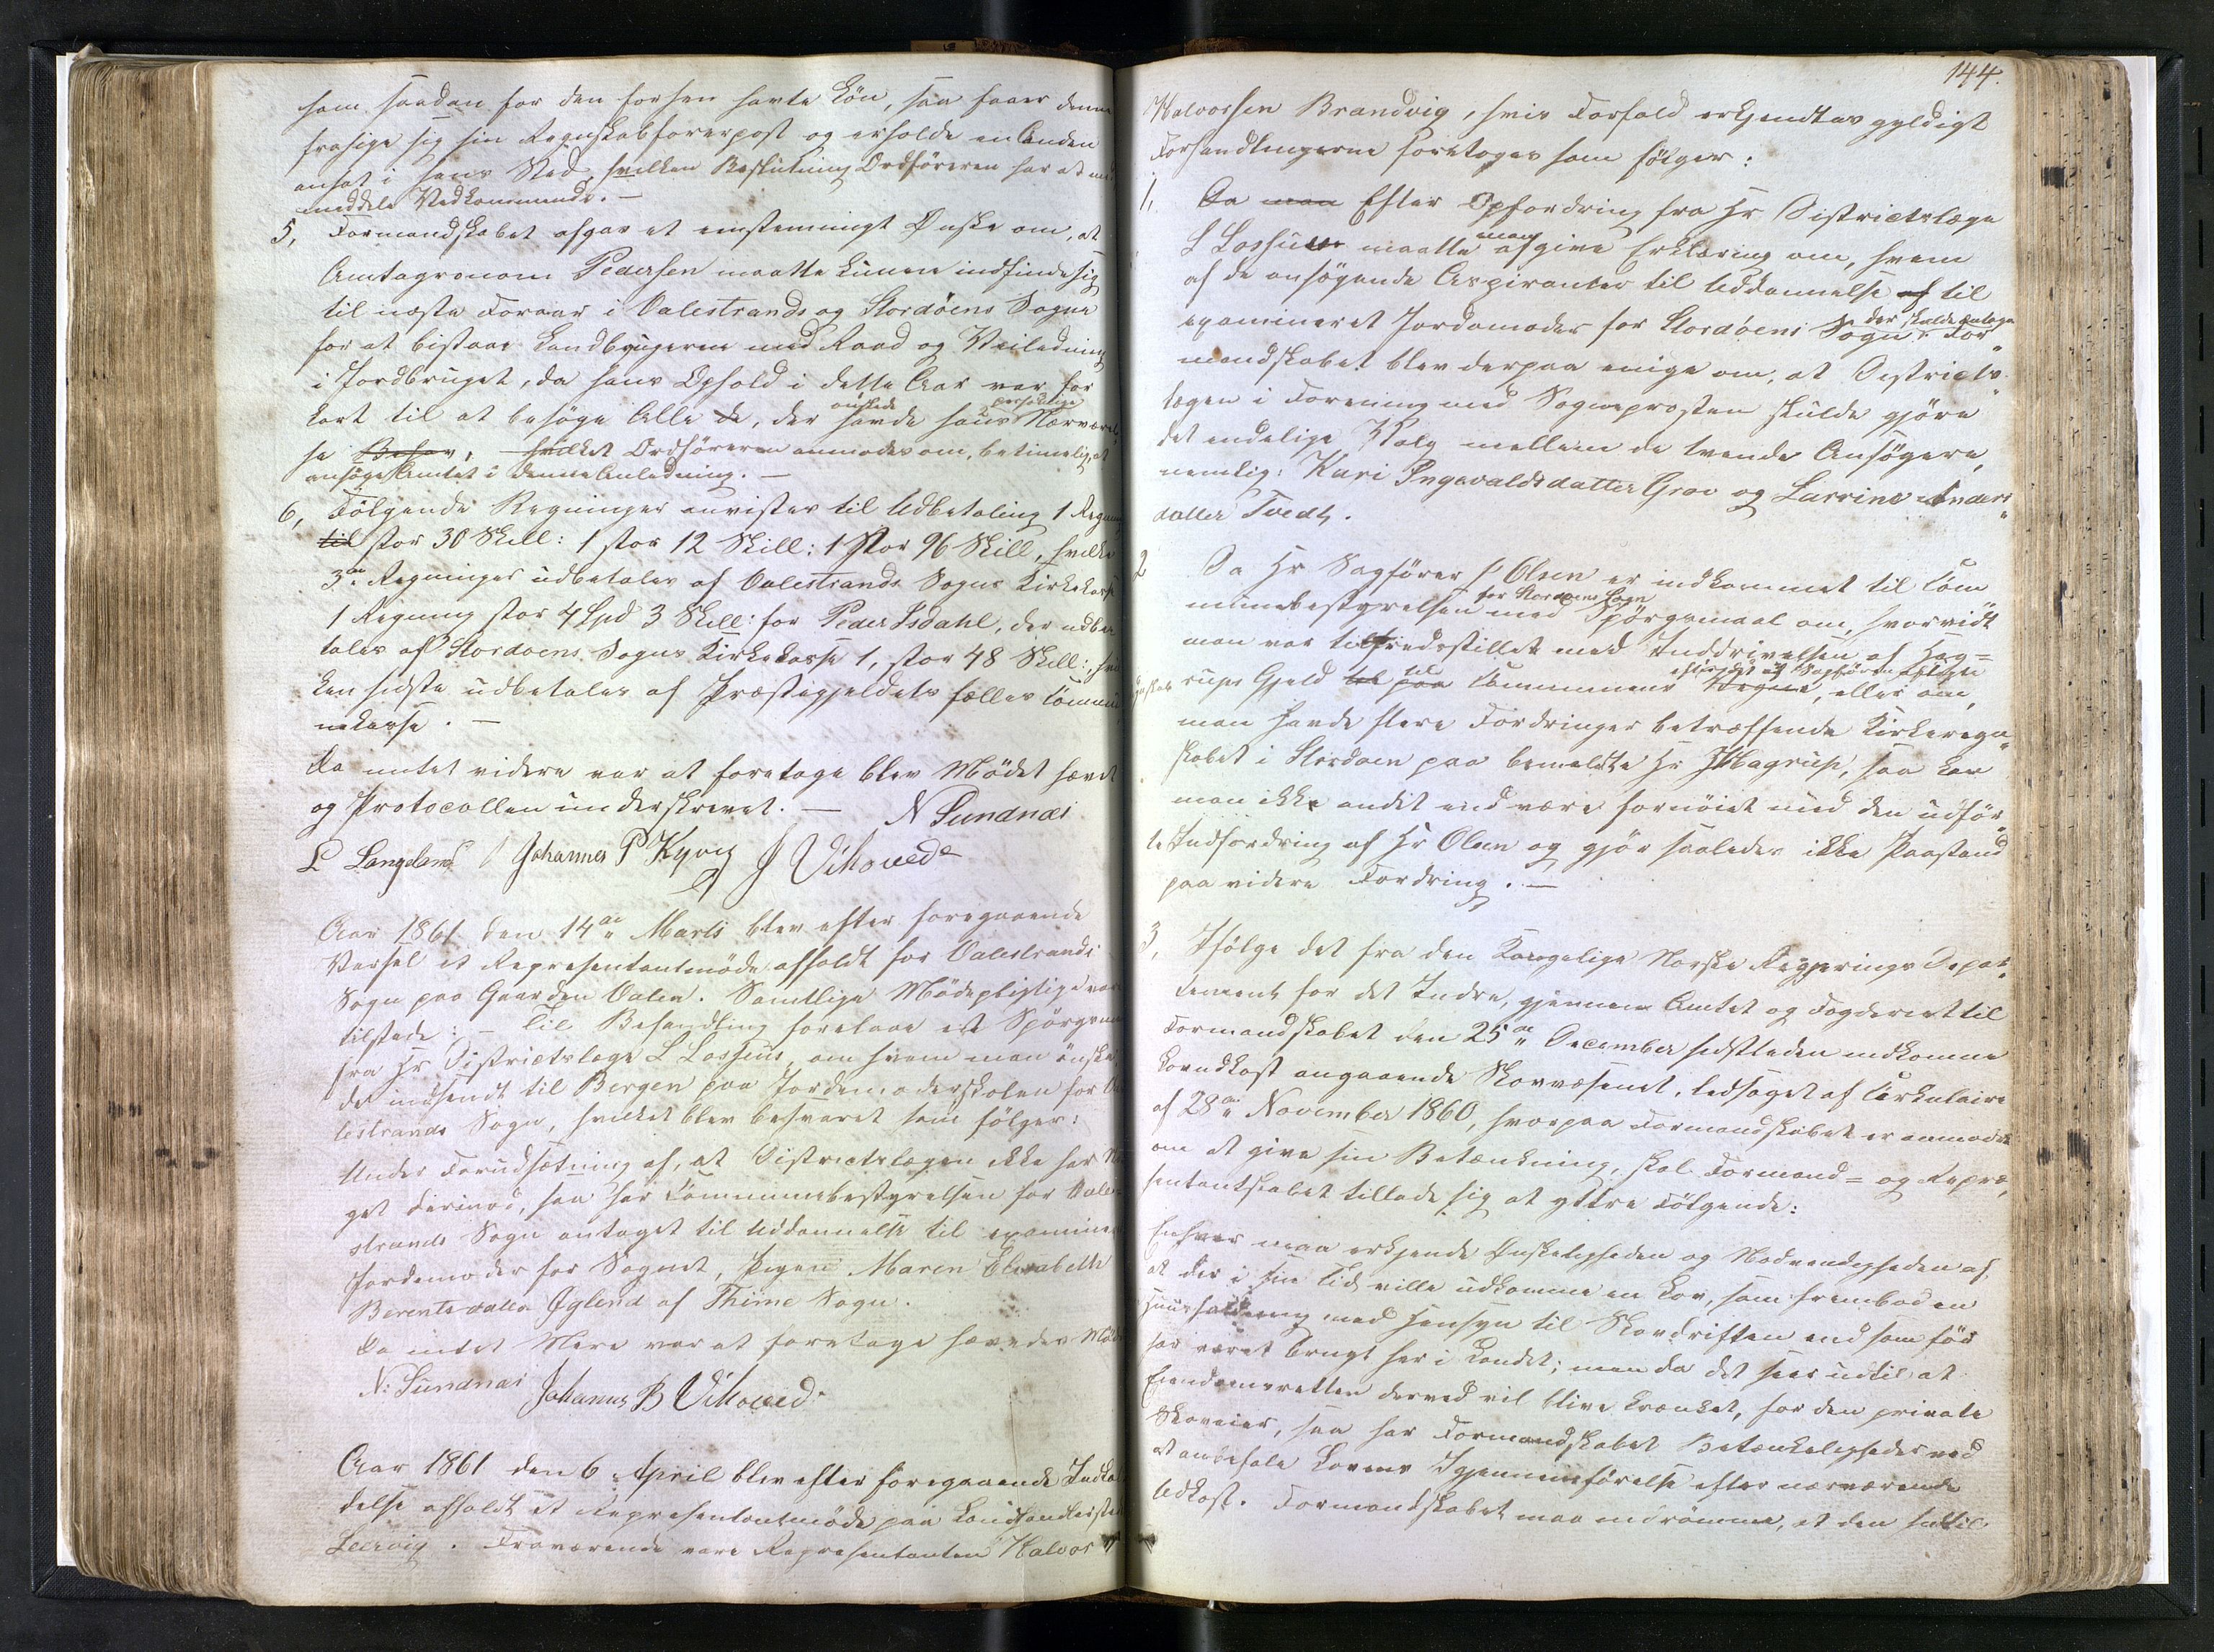 som saadan for den forhen havte Løn, saa faaer denne
frasige sig sin Regnskabsførerpost og erholde en Anden
ansat i hans Sted, hvilken Beslutning Ordføreren har at
meddele Vedkommende. —
5, Formandskabet afgav et eenstemmigt Ønske om, at
Amtagronom Pedersen maatte kunne indfinde sig
til næste Foraar i Valestrands og Stordøens Sogne
for at bistaae Landbrugerne med Raad og Veiledning
i Jordbruget, da hans Ophold i dette Aar var for
kort til at besøge Alle de, der ønskede havde hans personlige Nærværel-
se Behov, hvilket Ordføreren anmodes om, betimelig at
ansøge Amtet i denne Anledning. —
6, Følgende Regninger anvistes til Udbetaling 1 Regning
til stor 30 Skill: 1 stor 12 Skill: 1 stor 96 Skill, hvilke
3de Regninger udbetales af Valestrands Sogns Kirkekasse
1 Regning stor 4 Spd 3 Skill: for Peder Isdahl, der udbe
tales af Stordøens Sogns Kirkekasse 1, stor 48 Skill:, hvil
ken sidste udbetales af Præstegjeldets fælles Commu
nekasse. —
Da intet videre var at foretage blev Mødet hævet
og Protocollen underskrevet. — N Sundnæs
L Langeland Johannes P Kyvig J Vihovede
Aar 1861 den 14de Marts blev efter foregaaende
Varsel et Repræsentantmøde afholdt for Valestrands
Sogn paa Gaarden Valen. Samtlige Mødepligtige vare
tilstede: — Til Behandling forelaae et Spørgsmaal
fra Hr Districtslæge L Lossius, om hvem man ønske
de indsendt til Bergen paa Jordemoderskolen for Va
lestrands Sogn, hvilket blev besvaret som følger:
Under Forudsætning af, at Districtslægen ikke har No
get derimod, saa har Communebestyrelsen for Vale-
strands Sogn antaget til Uddannelse til examineret
Jordemoder for Sognet, Pigen Maren Elisabeth
Berentsdatter Øglend af Thime Sogn.
Da intet Mere var at foretage hævedes Mødet
N: Sundnæs Johannes B Vihoved
Aar 1861 den 6 April blev efter foregaaende Indkal
delse afholdt et Repræsentantmøde paa Landhandlerstedet
Leervig. Fraværende vare Repræsentanten Halvor
144.
Halvorsen Brandvig, hvis Forfald erkjendtes gyldigt
Forhandlingerne foretoges som følger:
1, Da man Efter Opfordring fra Hr Districtslæge
L Lossius maatte man afgive Erklæring om, hvem
af de ansøgende Aspiranter til Uddannelse af til
examineret Jordemoder for Stordøens Sogn der skulde antages. For-
mandskabet blev derpaa enige om, at Districts-
lægen i Forening med Sogneprosten skulde gjøre
det endelige Valg mellem de tvende Ansøgere,
nemlig: Kari Ingevaldsdatter Grov og Larrine Anders
datter Tvedt.
2 Da Hr Sagfører Olsen er indkommet til Com
munebestyrelsen for Stordøens Sogn med Spørgsmaal om, hvorvidt
man var tilfredsstillet med Inddrivelsen af Hag-
rups Gjeld til paa til Communens Vegne, eller om,
man havde flere Fordringer betræffende Kirkeregn
skabet i Stordøen paa bemeldte Hr Hagrup, saa kan
man ikke andet end være fornøiet med den udfør
te Indfordring af Hr Olsen og gjør saaledes ikke Paastand
paa videre Fordring. —
3, Ifølge det fra den Kongelige Norske Regjerings Depar
tement for det Indre, gjennem Amtet og Fogderiet til
Formandskabet den 25de December sidstleden indkomne
Lovudkast angaaende Skovvæsenet, ledsaget af Cirkulaire
af 28de November 1860, hvorpaa Formandskabet er anmodet
om at give sin Betænkning, skal Formand- og Repræ
sentantskabet tillade sig at yttre Følgende:
Enhver maa erkjende Ønskeligheden og Nødvendigheden af,
at der i sin Tid ville udkomme en Lov, som frembød en
Huusholdning med Hensyn til Skovdriften end som før
har været brugt her i Landet; men da det sees udtil at
Eiendomsretten derved vil blive krænket, for den private
Skoveier, saa har Formandskabet Betænkeligheder ved
at anbefale Lovens Igjennemførelse efter nærværende
Udkast. Formandskabet maa indrømme, at den hidtil